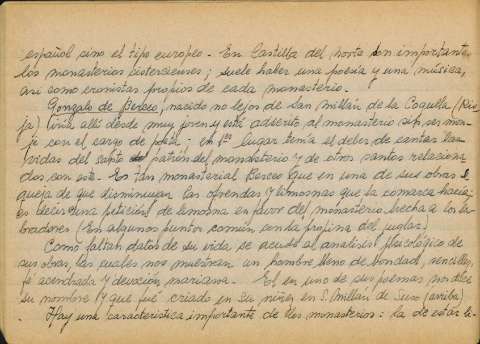 español sino el tipo europeo. En Castilla del norte son importantes
los monasterios cistercienses; suele haber una poesía y una música,
así como cronistas propios de cada monasterio.
Gonzalo de Berceo, nacido no lejos de San Millán de la Cogulla (Rio
ja) vivía allí desde muy joven y está adscrito al monasterio sin ser mon
je con el cargo de ; en 1er lugar tenía el deber de cantar las
vidas del santo patrón del monasterio y de otros santos relaciona
dos con este. Es tan monasterial Berceo que en una de sus obras se
queja de que disminuyan las ofrendas y limosnas que la comarca hacía:
es decir una petición de limosna en favor del monasterio hecha a los la-
bradores (En algunos puntos común con la propina del juglar.
Como faltan datos de su vida se acude al análisis psicológico de
sus obras, las cuales nos muestran un hombre lleno de bondad, sencillez,
fé acendrada y devoción mariana. El en uno de sus poemas nos dice
su nombre y que fué criado en su niñez en S. Millán de Suso (arriba).
Hay una característica importante de los monasterios: la de estar si-